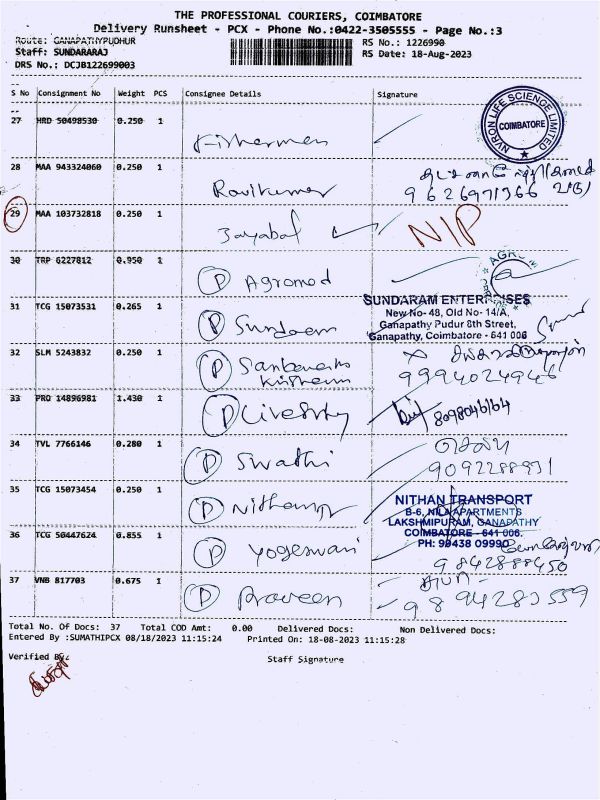 THE PROFESSIONAL COURIERS, COIMBATORE
Delivery Runsheet - PCX - Phone No.:0422-3505555 - Page No.:3
Route: GANAPATHYPUDHUR
RS No.: 1226990
Staff: SUNDARARAJ
RS Date: 18-Aug-2023
DRS No.: DCJB122699003
S No Consignment No Weight PCS Consignee Details Signature
27 HRD 50498530 0.250 1
Fishermen
NVRON LIFE SCIENCE LIMITED
COIMBATORE
28 MAA 943324060 0.250 1
Ravikumar
9626971366
29 MAA 103732818 0.250 1
Jayabal
N/P
30 TRP 6227812 0.950 1
P Agromed
SUNDARAM ENTERPRISES
New No- 48, Old No- 14/A,
Ganapathy Pudur 8th Street,
Ganapathy, Coimbatore - 641 006
31 TCG 15073531 0.265 1
P Sundaram
32 SLM 5243832 0.250 1
P
9994024946
33 PRO 14896981 1.430 1
P
8098046164
34 TVL 7766146 0.280 1
P Swathi
9092288931
35 TCG 15073454 0.250 1
P
NITHAN TRANSPORT
B-6, NILA APARTMENTS
LAKSHMIPURAM, GANAPATHY
COIMBATORE - 641 006.
PH: 99438 09990
36 TCG 50447624 0.855 1
P Yogeswari
9842888450
37 VNB 817703 0.675 1
P Praveen
9894283559
Total No. Of Docs: 37 Total COD Amt: 0.00 Delivered Docs: Non Delivered Docs:
Entered By :SUMATHIPCX 08/18/2023 11:15:24 Printed On: 18-08-2023 11:15:28
Verified By:
Staff Signature